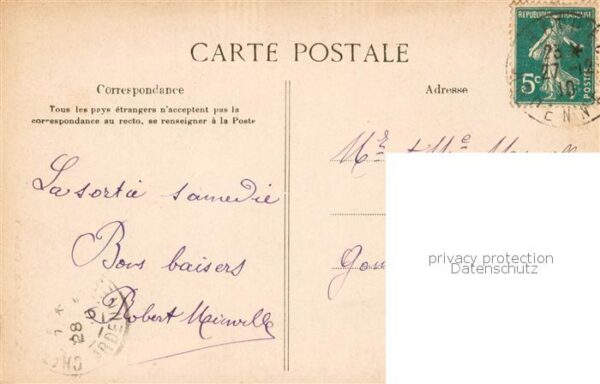 CARTE POSTALE
REPUBLIQUE FRANÇAISE
5c
POSTES
Correspondance
Tous les pays étrangers n'acceptent pas la
correspondance au recto, se renseigner à la Poste
Adresse
La sortie samedie
Bons baisers
Robert
Mr et Me
privacy protection
Datenschutz
28